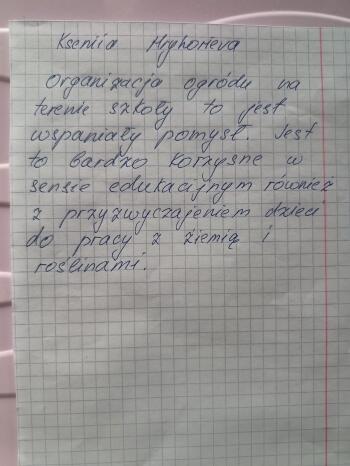 Kseniia Hryhorieva
Organizacja ogródu na
terenie szkoły to jest
wspaniały pomysł. Jest
to bardzo korzysne w
sensie edukacijnym również
z przyzwyczajeniem dzieci
do pracy z ziemią i
roślinami.